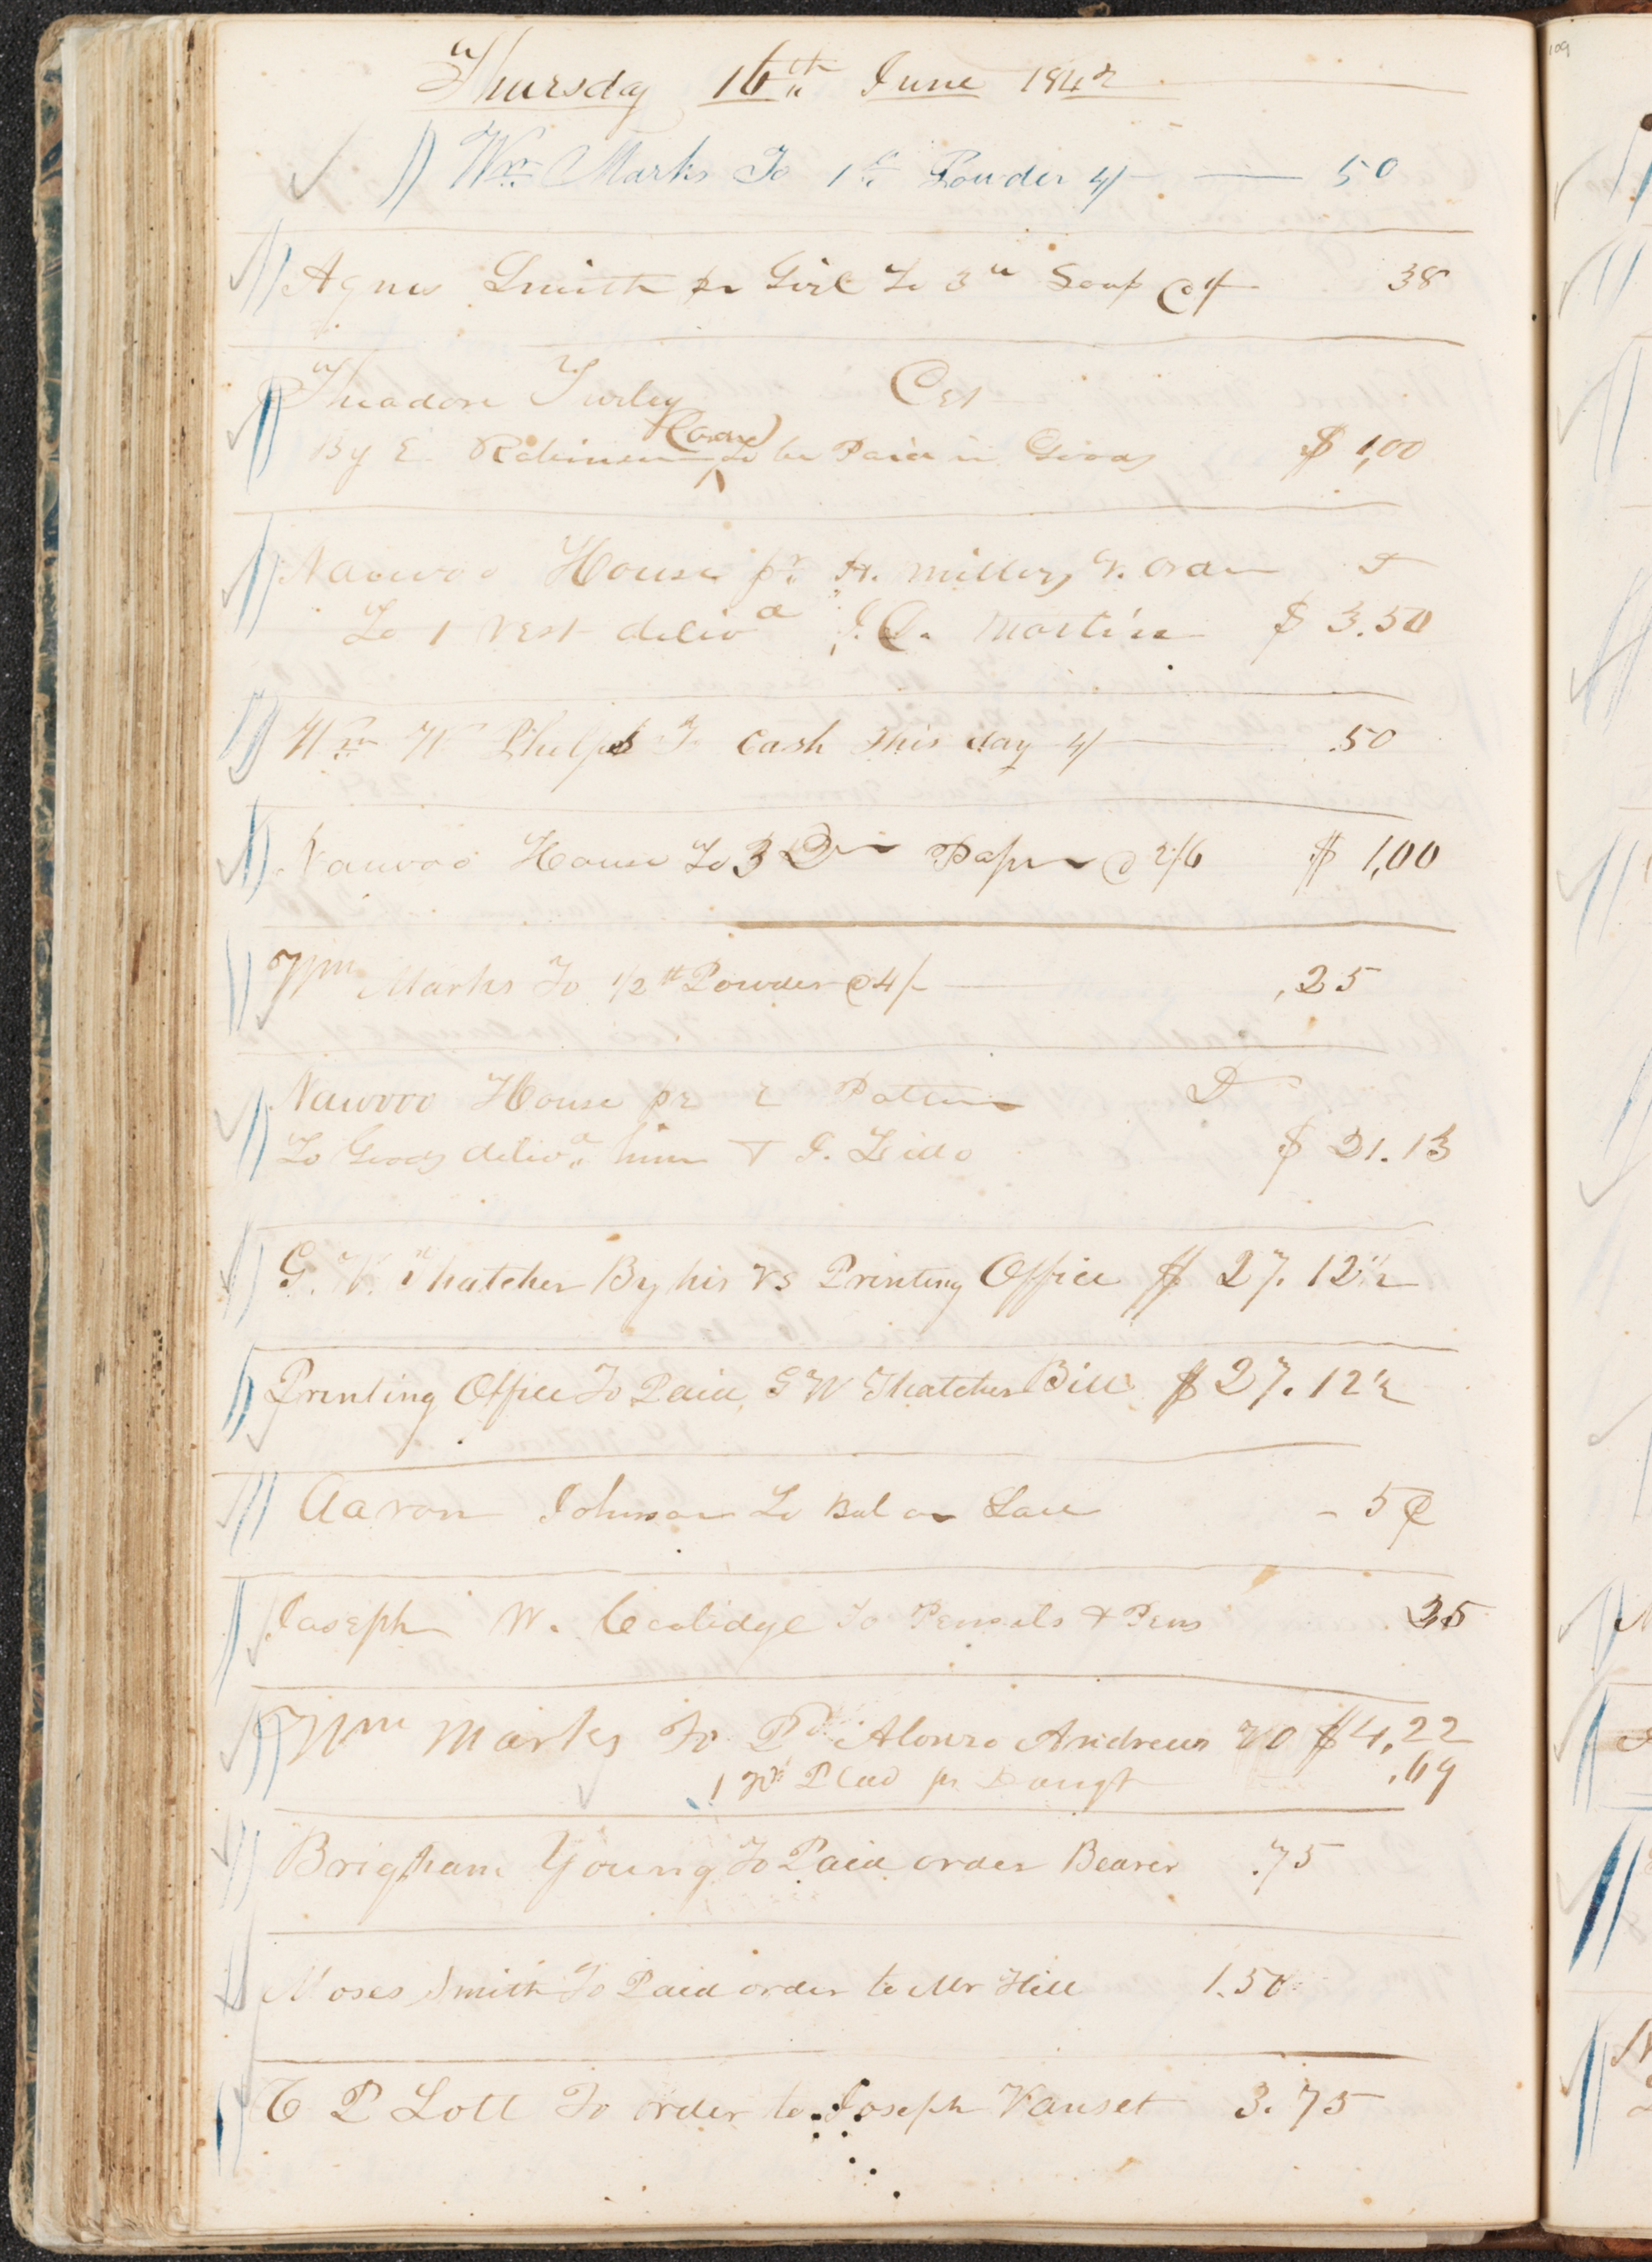 Thursday 16th June 1842
Wm Marks To 1 lb Powder 4/ — 50
Agnes Smith pr Girl To 3 lb Soap @ 1/ 38
Theodore Turley Cr
(Coar)
By E Robinson to be Paid in Goods $ 1,00
Nauvoo House pr H. Miller, r. order Dr
To 1 vest delivd J. C. Martin $ 3.50
Wm W Phelps To Cash this day 4/ .50
Nauvoo House To 3 Paper @ 2/6 $ 1,00
Wm Marks To 1/2 lb Powder @ 4/- ,25
Nauvoo House pr Patten Dr
To Goods delivd him & J. $ 21.13
G. W. Thatcher By his vs Printing Office $ 27. 12 1/2
Printing Office To Paid G W Thatcher Bill $ 27. 12 1/2
Aaron Johnson To Bal on - 5¢
Joseph W. Coolidge To Pensils & Pens 25
Wm Marks To Pd Alonzo Andrews $ 4,22
1 yd Plad pr Daugt .69
Brigham Young To Paid order Bearer .75
Moses Smith To Paid order to Mr Hill 1.50
C P Lott To order to Joseph Vanset 3.75
109